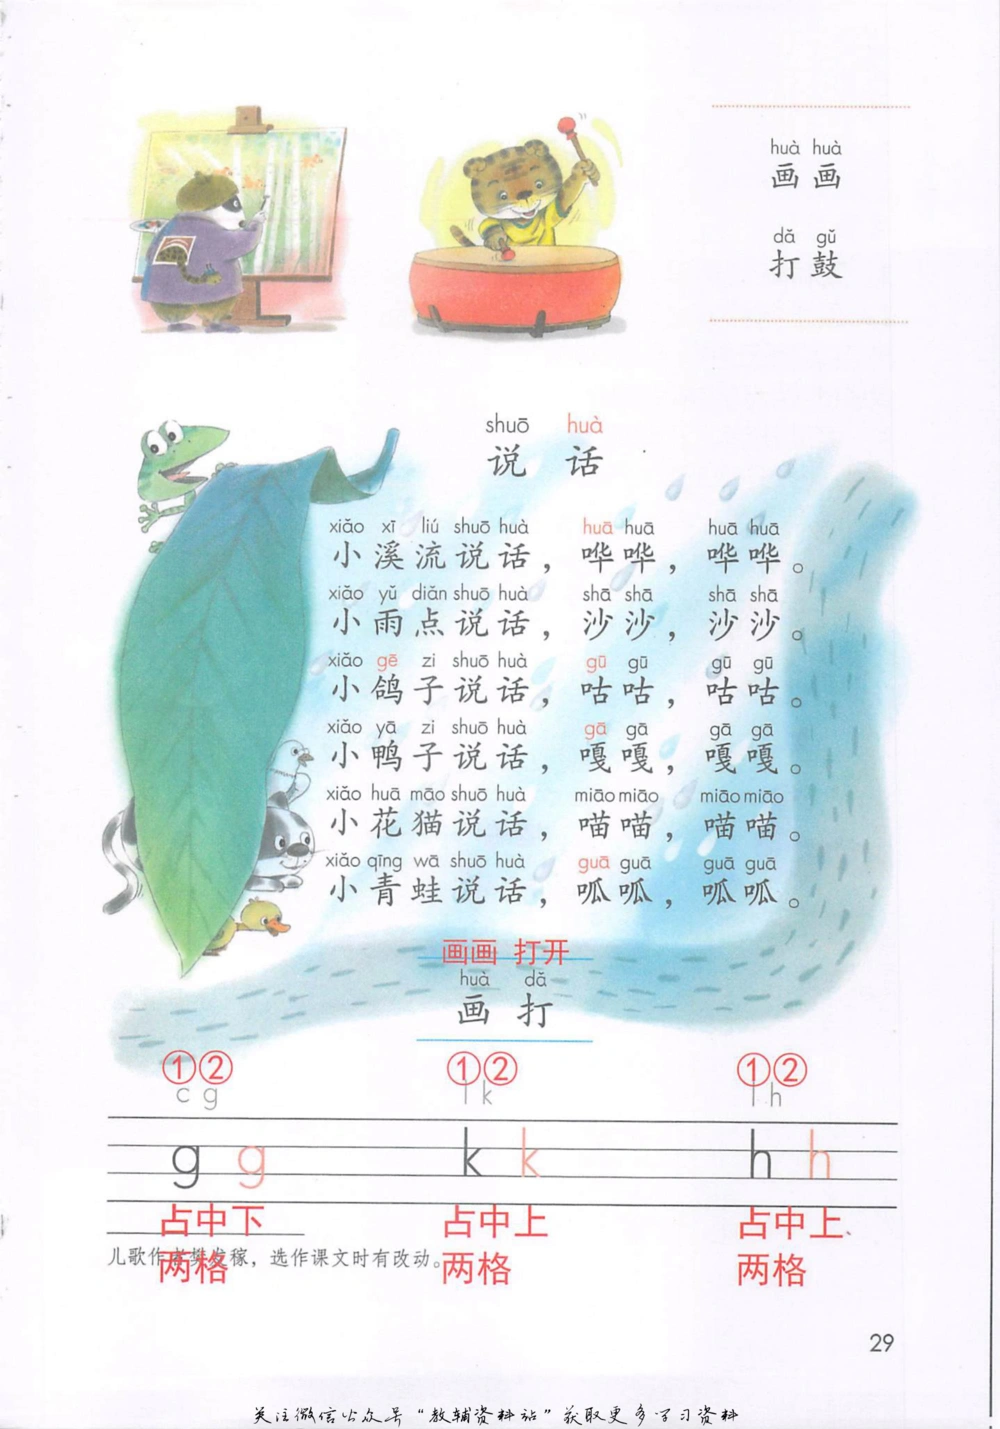 huà huà
画画
dǎ gǔ
打鼓
shuō huà
说话
xiǎo xī liú shuō huà huā huā huā huā
小溪流说话，哗哗，哗哗。
xiǎo yǔ diǎn shuō huà shā shā shā shā
小雨点说话，沙沙，沙沙。
xiǎo gē zi shuō huà gū gū gū gū
小鸽子说话，咕咕，咕咕。
xiǎo yā zi shuō huà gā gā gā gā
小鸭子说话，嘎嘎，嘎嘎。
xiǎo huā māo shuō huà miāo miāo miāo miāo
小花猫说话，喵喵，喵喵。
xiǎo qīng wā shuō huà guā guā guā guā
小青蛙说话，呱呱，呱呱。
画画 打开
huà dǎ
画 打
①② ①② ①②
c g l k l h
g g k k h h
占中下 占中上 占中上、
儿歌作者樊发稼，选作课文时有改动。
两格 两格 两格
29
关注微信公众号“教辅资料站”获取更多学习资料